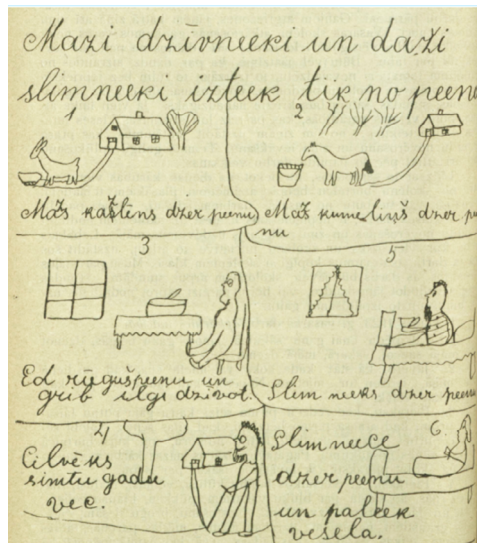 Mazi dzīvneeki un daži
slimneeki izteek tik no peena
1
Mažs kažlēns dzer peenu
2
Mažs kumeliņš dzer pee
nu
3
Ed rūgušpeenu un
grib ilgi dzīvot.
5
Slimneeks dzer peenu
4
Cilvēks
simtu gadu
vec.
6
Slimneece
dzer peenu
un paleek
vesela.